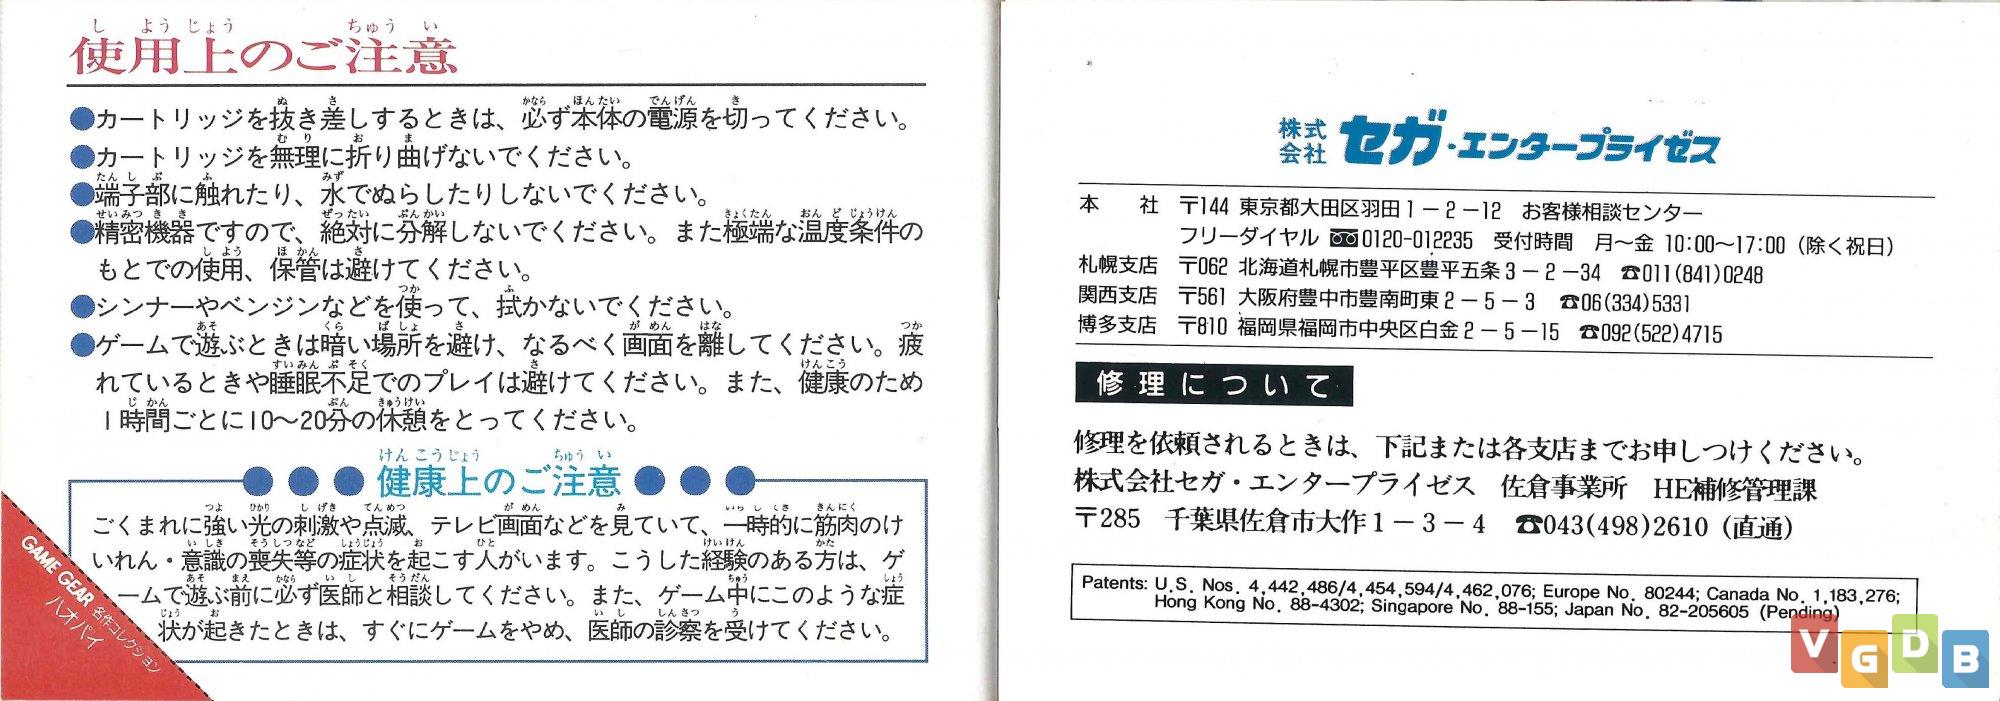 使用上のご注意
●カートリッジを抜き差しするときは、必ず本体の電源を切ってください。
●カートリッジを無理に折り曲げないでください。
●端子部に触れたり、水でぬらしたりしないでください。
●精密機器ですので、絶対に分解しないでください。また極端な温度条件の
もとでの使用、保管は避けてください。
●シンナーやベンジンなどを使って、拭かないでください。
●ゲームで遊ぶときは暗い場所を避け、なるべく画面を離してください。疲
れているときや睡眠不足でのプレイは避けてください。また、健康のため
1時間ごとに10〜20分の休憩をとってください。
●●●健康上のご注意●●●
ごくまれに強い光の刺激や点滅、テレビ画面などを見ていて、一時的に筋肉のけ
いれん・意識の喪失等の症状を起こす人がいます。こうした経験のある方は、ゲ
ームで遊ぶ前に必ず医師と相談してください。また、ゲーム中にこのような症
状が起きたときは、すぐにゲームをやめ、医師の診察を受けてください。
GAME GEAR 名作コレクション
ハオパイ
株式会社 セガ・エンタープライゼス
本社 〒144 東京都大田区羽田1-2-12 お客様相談センター
フリーダイヤル 0120-012235 受付時間 月〜金 10:00〜17:00（除く祝日）
札幌支店 〒062 北海道札幌市豊平区豊平五条3-2-34 ☎011(841)0248
関西支店 〒561 大阪府豊中市豊南町東2-5-3 ☎06(334)5331
博多支店 〒810 福岡県福岡市中央区白金2-5-15 ☎092(522)4715
修理について
修理を依頼されるときは、下記または各支店までお申しつけください。
株式会社セガ・エンタープライゼス 佐倉事業所 HE補修管理課
〒285 千葉県佐倉市大作1-3-4 ☎043(498)2610（直通）
Patents: U.S. Nos. 4,442,486/4,454,594/4,462,076; Europe No. 80244; Canada No. 1,183,276;
Hong Kong No. 88-4302; Singapore No. 88-155; Japan No. 82-205605 (Pending)
VGDB